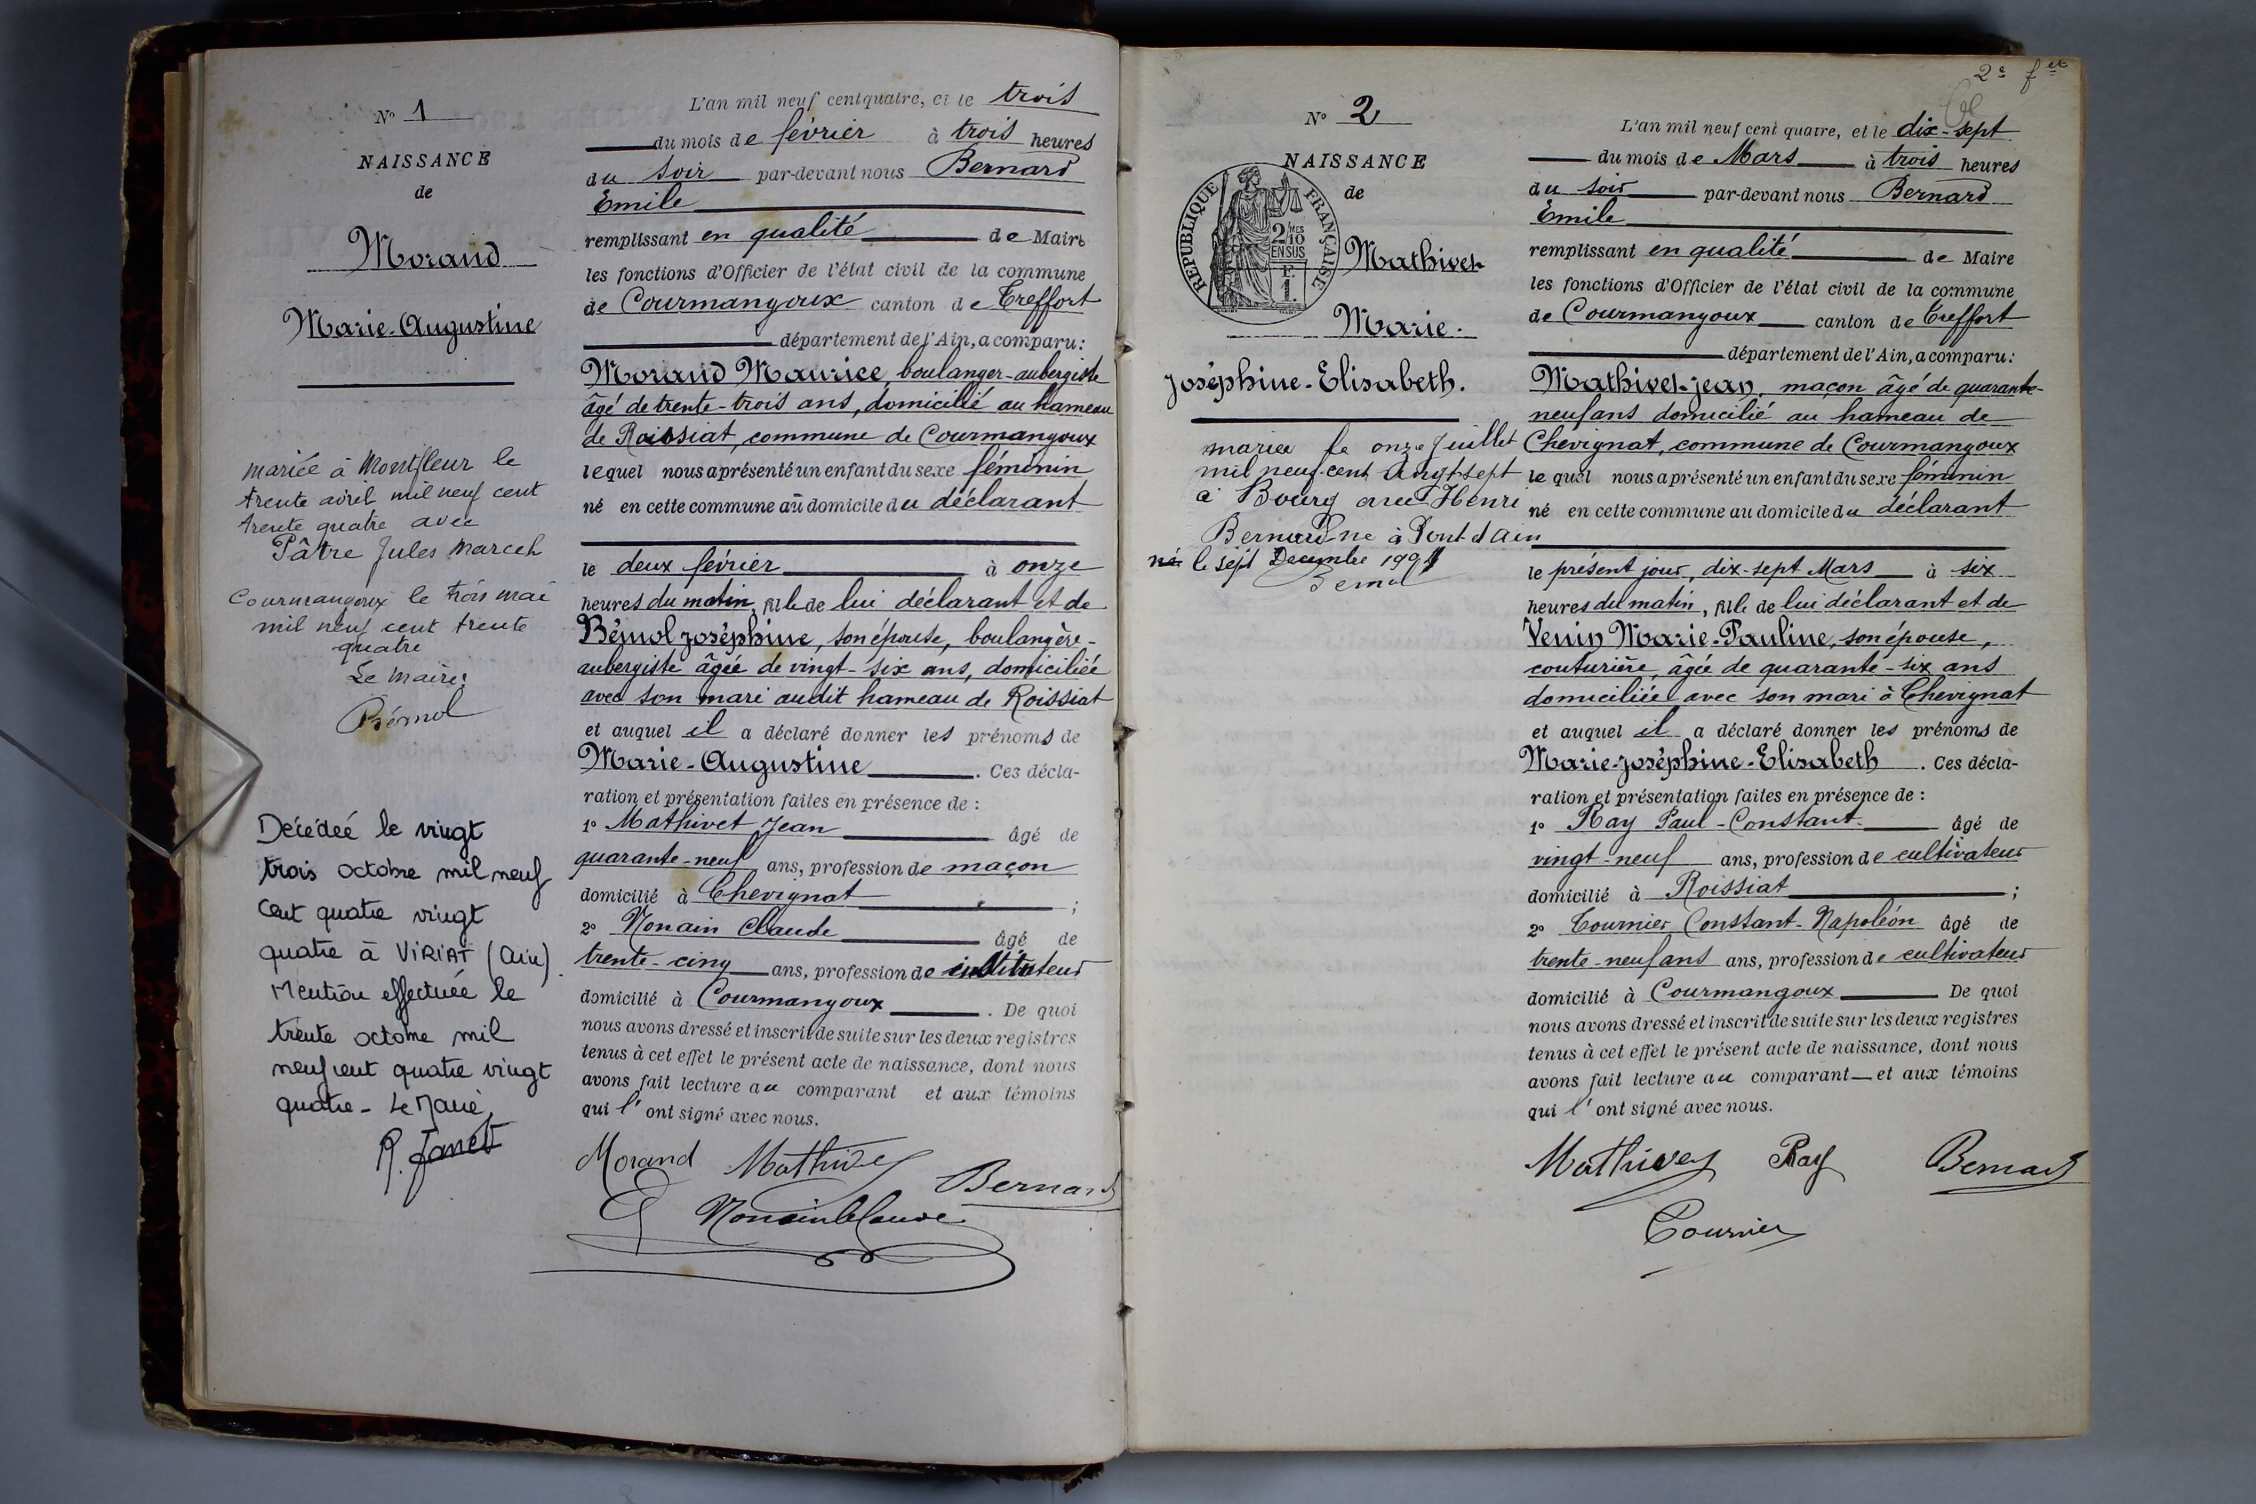 Nº 1
NAISSANCE
de
Morand
Marie-Augustine
mariée à Montfleur le
trente avril mil neuf cent
trente quatre avec
Pâtre Jules Marcel
Courmangoux le trois mai
mil neuf cent trente
quatre
Le Maire:
Décédée le vingt
trois octobre mil neuf
cent quatre vingt
quatre à VIRIAT (Ain).
Mention effectuée le
trente octobre mil
neuf cent quatre vingt
quatre - Le Maire,
L'an mil neuf cent quatre, et le trois
du mois de février à trois heures
du soir par-devant nous Bernard
Emile
remplissant en qualité de Maire
les fonctions d'Officier de l'état civil de la commune
de Courmangoux canton de Treffort
département de l'Ain, a comparu:
Morand Maurice boulanger-aubergiste
âgé de trente-trois ans, domicilié au hameau
de Roissiat, commune de Courmangoux
lequel nous a présenté un enfant du sexe féminin
né en cette commune au domicile du déclarant
le deux février à onze
heures du matin, fille de lui déclarant et de
Bémol Joséphine, son épouse, boulangère-
aubergiste âgée de vingt-six ans, domiciliée
avec son mari audit hameau de Roissiat
et auquel il a déclaré donner les prénoms de
Marie-Augustine. Ces décla-
ration et présentation faites en présence de :
1º Mathivet Jean âgé de
quarante-neuf ans, profession de maçon
domicilié à Chevignat ;
2º Monain Claude âgé de
trente-cinq ans, profession de instituteur
domicilié à Courmangoux. De quoi
nous avons dressé et inscrit de suite sur les deux registres
tenus à cet effet le présent acte de naissance, dont nous
avons fait lecture au comparant et aux témoins
qui l'ont signé avec nous.
Morand Mathivet
Bernard
Monain Claude
2e fet
Nº 2
NAISSANCE
de
RÉPUBLIQUE FRANÇAISE
2/10 MES
EN SUS
F.
1.
Mathivet
Marie-
Joséphine-Elisabeth.
mariée le onze juillet
mil neuf cent vingt sept
à Bourg avec Henri
Bernard né à Pont d'Ain
né le sept Decembre
L'an mil neuf cent quatre, et le dix-sept
du mois de Mars à trois heures
du soir par-devant nous Bernard
Emile
remplissant en qualité de Maire
les fonctions d'Officier de l'état civil de la commune
de Courmangoux canton de Treffort
département de l'Ain, a comparu:
Mathivet Jean, maçon âgé de quarante-
neuf ans domicilié au hameau de
Chevignat, commune de Courmangoux
lequel nous a présenté un enfant du sexe féminin
né en cette commune au domicile du déclarant
le présent jour, dix-sept Mars à six
heures du matin, fille de lui déclarant et de
Venin Marie-Pauline, son épouse,
couturière, âgée de quarante-six ans
domiciliée avec son mari à Chevignat
et auquel il a déclaré donner les prénoms de
Marie-Joséphine-Elisabeth. Ces décla-
ration et présentation faites en présence de :
1º Ray Paul-Constant âgé de
vingt-neuf ans, profession de cultivateur
domicilié à Roissiat ;
2º Tournier Constant-Napoléon âgé de
trente-neuf ans ans, profession de cultivateur
domicilié à Courmangoux De quoi
nous avons dressé et inscrit de suite sur les deux registres
tenus à cet effet le présent acte de naissance, dont nous
avons fait lecture au comparant et aux témoins
qui l'ont signé avec nous.
Mathivet Ray Bernard
Tournier